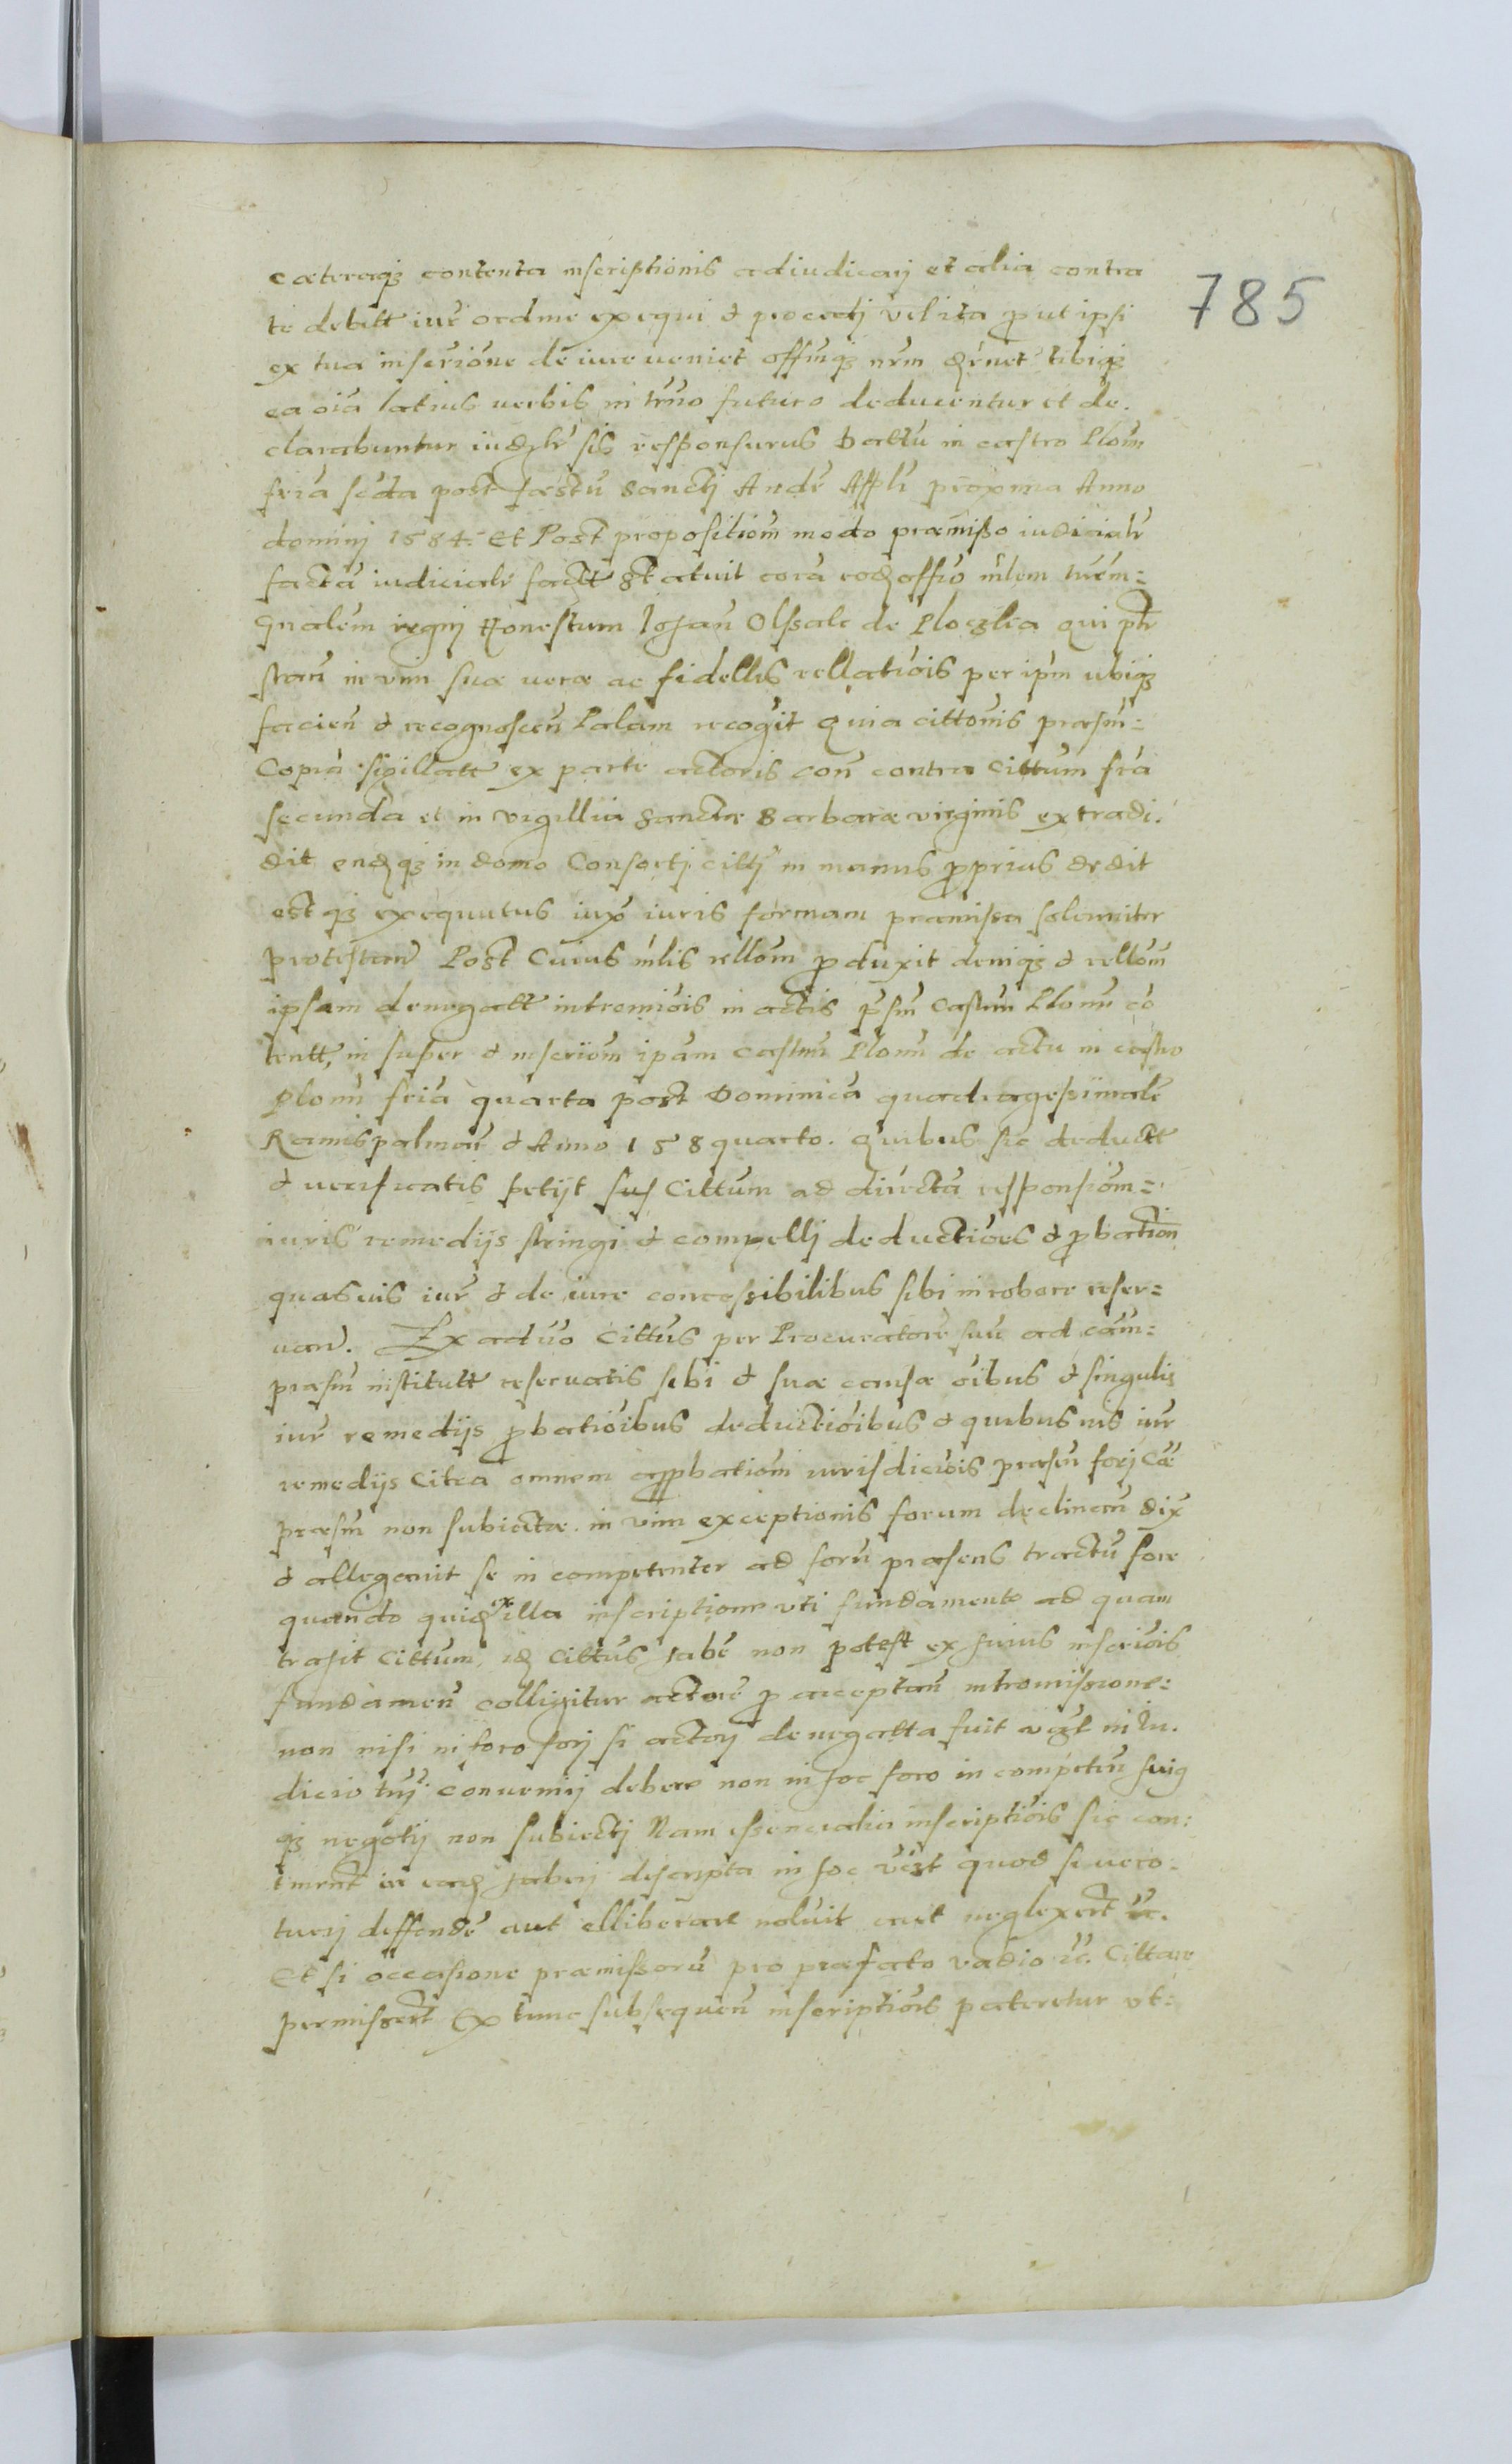 785
cæteraq₃ contenta inscriptionis adiudicarj et alia contra
te debitt iur̃ ordine exequi & procedj vel ita prout ipsi
ex tua inscrīone de iure veniet offmq₃ nr̃m tibiq₃
ea oīa latius verbis in tr̃no futuro deducentur et de.
clarabuntur sis responsurus Dattū in castro Plonn̄
feria scda post fæstū Sanctj Andr̄ Appli proxima Anno
dominj 1584. Et Post propositiōm modo præmißo iudicialr̄
factā iudicialr̄ statuit corā eod offīo mlem
gn̄alem regnj Honestum Johan̄ Olssak de Plocz
in vim suæ veræ ac fidellis rellatiōis per ipm̄ ubiq₃
facien̄ & recognoscen̄ Palam recog̃it Quia cittōnis præsn̄:
Copiā sigillatt ex parte actoris con contra Cittum fr̄ia
secunda et in vigillia Sanctæ Barbaræ virginis extradi.
dit endq₃ in domo Consortj cittj in manus proprius dedit
estq₃ exequutus iux̄ iuris formam præmissa solemniter
protestan̄ Post Cuius mlis rellōm produxit deniq₃ & rellōm
ipsam denegatt intromiōis in actis pr̄sn̄ Castrn̄ Plonn̄ cō
tentt, in super & inscrīom ipam castrn̄ Plonn̄ de actu in castro
Plonn̄ fr̄ia quarta post Dominicā quadragessimale
Ramispalmar̄ & Anno 158 quarto. Quibus sic deductt
& verificatis petijt suj Cittum ad directā responsiōm =
iuris remedijs stringi & compellj deductiōes & probatiōn
quasvis iur̄ & de iure concessibilibus sibi in robore reser=
van̄. Ex advo Cittus per Procuratorē suū ad cām:
præsn̄ institutt reservatis sibi & suæ causæ oībus & singulis
iur̄ remedijs probatiōibus deductiōibus & quibusvis iur̄
remedijs Citra omnem approbatiōm iurisdictiōis præsn̄ forj Cæ
præsn̄ non subiectæ in vim exceptionis forum declinan̄ dix̄
& allegavit se in competenter ad forū præsens tractū fore
quando quid ex illa inscriptione uti fundamento ad quam
trahit Cittum, id Cittus habe non potest ex huius inscriōis
fundamen̄ colligitur actore pro acceptan̄ intromissione:
non nisi in foro forj si actorj denegatta fuit in Iu.
dicio conveniij debere non in hoc foro in competen̄
q₃ negotij non subiectj Nam essencialia inscriptiōis sic con:
 descripta in hoc quod si vero.
tuerj deffende aut elliberare noluit aut neglexerit etc.
Et si occasione præmissorū pro præfato vadio etc. Cittare
permisserit Ex tunc subsequen̄ inscriptiōis pateretur ut: